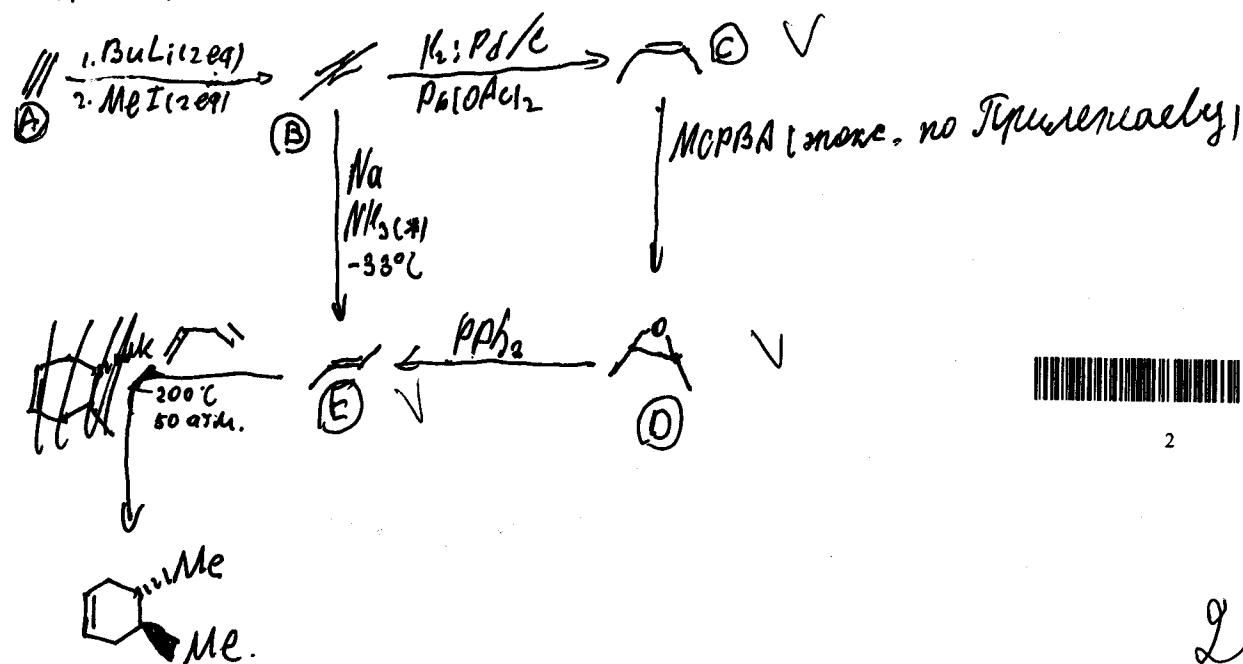 1. BuLi(2eq)
2. MeI(2eq)
H₂; Pd/C
Pb(OAc)₂
A
B
C V
Na
NH₃(ж)
-33°C
MCPBA (эпокс. по Прилежаеву)
Me
200°C
50 атм.
PPh₃
O
V
E V
D
2
Me
Me.
2